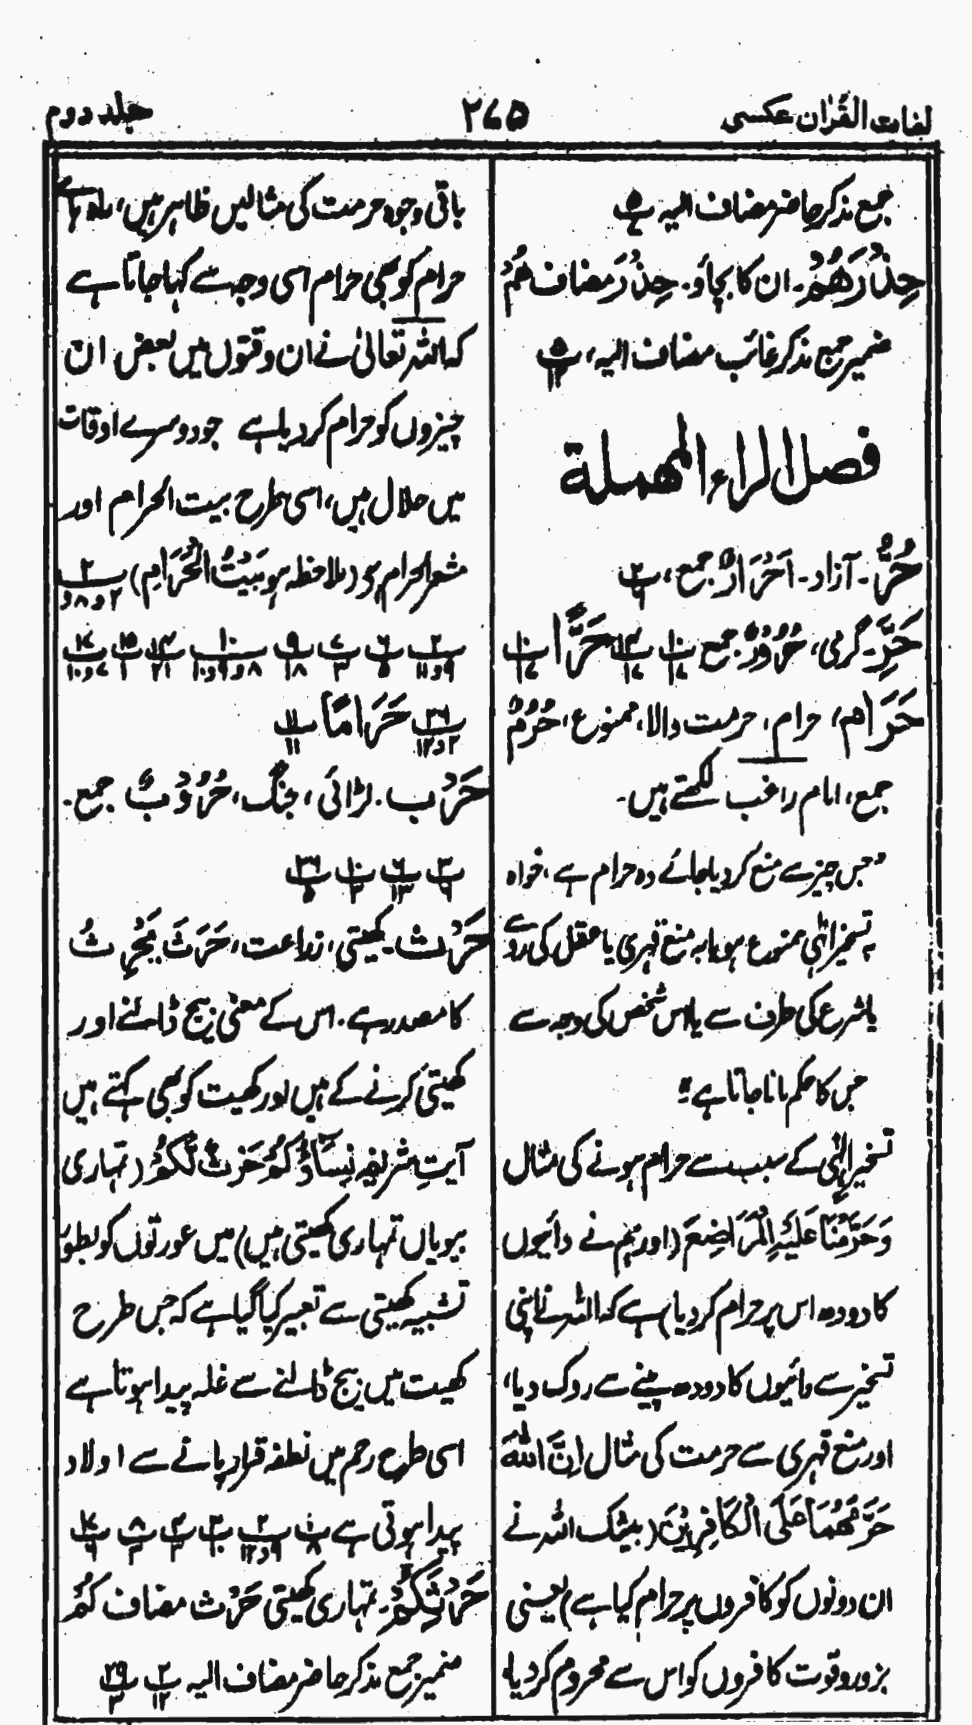 لغات القرآن عکسی
۲۷۵
جلد دوم
جمع مذکر حاضر مضاف الیہ پ۵
حِذْرَهُمْ۔ ان کا بچاؤ۔ حِذْرَ مضاف هُمْ
ضمیر جمع مذکر غائب مضاف الیہ، پ۵/۱۲
فصل الراء المهملة
حُرٌّ۔ آزاد۔ اَحْرَارٌ جمع، پ۲/۶
حَرِّ۔ گرمی، حُرُوْرٌ جمع پ۱۰/۱۷ حَرًّا پ۱۰/۱۷
حَرَامٌ، حرام، حرمت والا، ممنوع، حُرُمٌ
جمع، امام راغب لکھتے ہیں۔
"جس چیز سے منع کر دیا جائے وہ حرام ہے، خواہ
بہ تسخیر الٰہی ممنوع ہو یا بہ منع قہری یا عقل کی رو سے
یا شرع کی طرف سے یا اس شخص کی وجہ سے
جس کا حکم مانا جاتا ہے"
تسخیر الٰہی کے سبب سے حرام ہونے کی مثال
وَحَرَّمْنَا عَلَيْهِ الْمَرَاضِعَ (اور ہم نے دائیوں
کا دودھ اس پر حرام کر دیا) ہے کہ اللہ نے اپنی
تسخیر سے دائیوں کا دودھ پینے سے روک دیا،
اور منع قہری سے حرمت کی مثال اِنَّ اللّٰهَ
حَرَّمَهُمَا عَلَى الْكَافِرِيْنَ (بیشک اللہ نے
ان دونوں کو کافروں پر حرام کیا ہے) یعنی
بزور و قوت کافروں کو اس سے محروم کر دیا
باقی وجوہ حرمت کی مثالیں ظاہر ہیں،
حرام کو بھی حرام اسی وجہ سے کہا جاتا ہے
کہ اللہ تعالیٰ نے ان وقتوں میں بعض ان
چیزوں کو حرام کر دیا ہے جو دوسرے اوقات
میں حلال ہیں، اسی طرح بیت الحرام اور
مشعر الحرام ہے (ملاحظہ ہو بَيْتُ الْحَرَامِ) پ۲/۲و۸و
پ۲/۹و۱۱ پ۶/۵ پ۷/۳ پ۹/۱۸ پ۱۰/۸و۹و۱۰ پ۱۴/۲۱ پ۱۵/۱ پ۱۷/۷و۱۰
پ۲۶/۲و۱۲ حَرَامًا پ۱۱/۱۱
حَرْب۔ لڑائی، جنگ، حُرُوْبٌ جمع۔
پ۳/۶ پ۶/۱۳ پ۱۰/۳ پ۲۶/۵
حَرْث۔ کھیتی، زراعت، حَرَثَ يَحْرِثُ
کا مصدر ہے۔ اس کے معنی بیج ڈالنے اور
کھیتی کرنے کے ہیں اور کھیت کو بھی کہتے ہیں
آیتِ شریفہ نِسَاؤُكُمْ حَرْثٌ لَّكُمْ (تمہاری
بیویاں تمہاری کھیتی ہیں) میں عورتوں کو بطور
تشبیہ کھیتی سے تعبیر کیا گیا ہے کہ جس طرح
کھیت میں بیج ڈالنے سے غلہ پیدا ہوتا ہے
اسی طرح رحم میں نطفہ قرار پانے سے اولاد
پیدا ہوتی ہے پ۱/۸ پ۲/۹و۱۲ پ۳/۱۰ پ۴/۳ پ۸/۳ پ۱۷/۶
حَرْثَكُمْ۔ تمہاری کھیتی حَرْث مضاف كُمْ
ضمیر جمع مذکر حاضر مضاف الیہ پ۲/۱۲ پ۲۹/۳